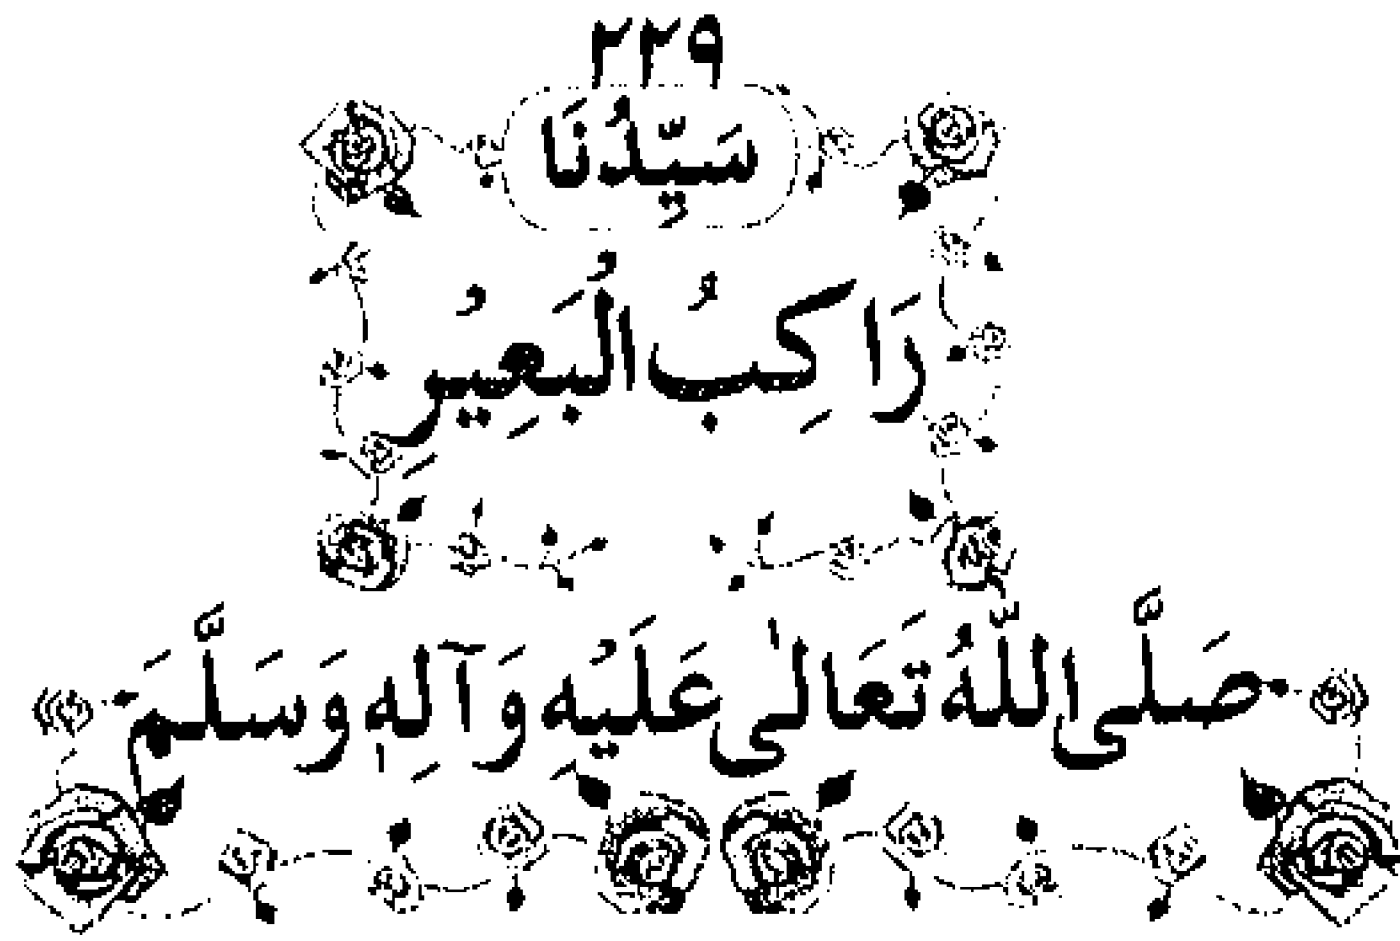 ٢٢٩
سَيِّدُنَا
رَاكِبُ الْبَعِيْرِ
صَلَّى اللّٰهُ تَعَالٰى عَلَيْهِ وَآلِهٖ وَسَلَّمَ